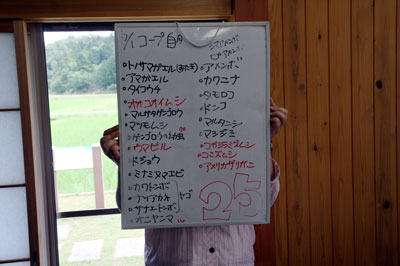 7/1 コープ自然
・トノサマガエル(おたま)
・アマガエル
・タイコウチ
・オオコオイムシ
・マルガタゲンゴロウ
・マツモムシ
・ゲンゴロウの幼虫
・ウマビル
・ドジョウ
・ミナミヌマエビ
・カワトンボ
・ナツアカネ
・サナエトンボ
・オニヤンマ
ヤゴ
・アメンボ
・カワニナ
・タモロコ
・ドンコ
・マルタニシ
・マシジミ
・コガシラミズムシ
・コミズムシ
・アメリカザリガニ
25